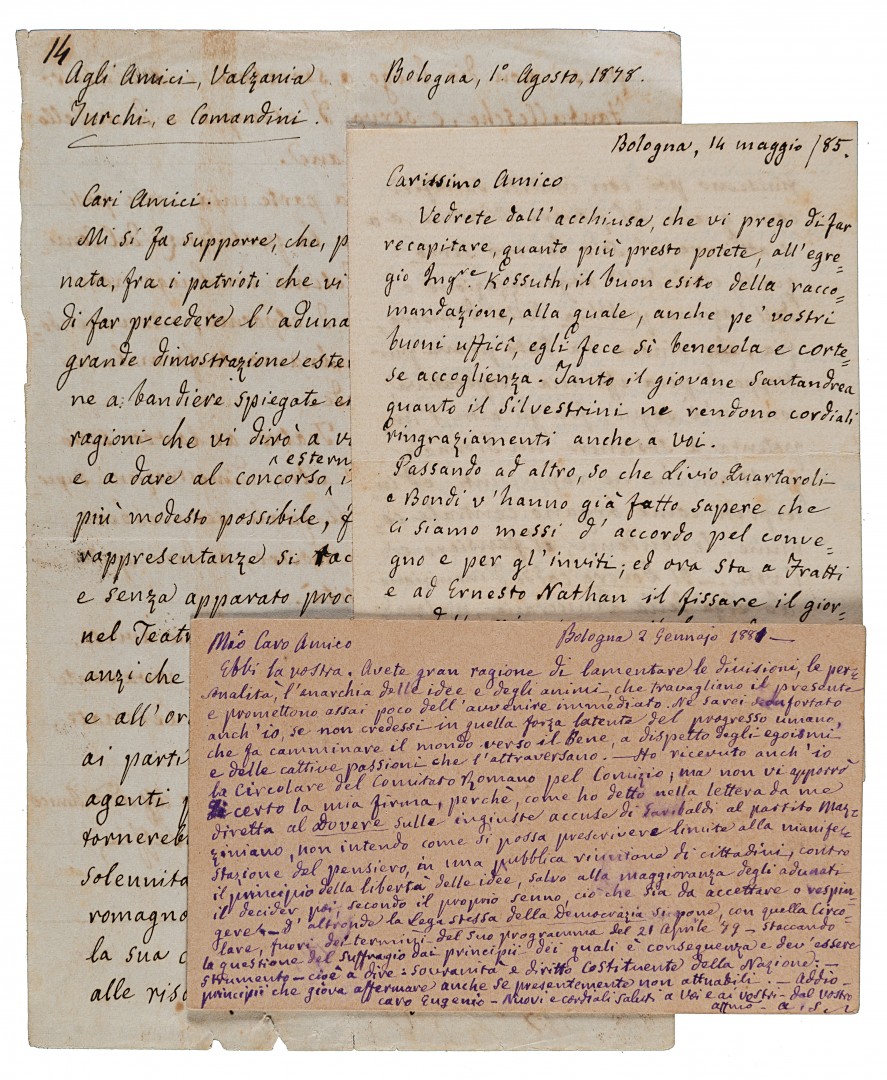 14
Agli Amici, Valzania
Turchi, e Comandini.
Bologna, 1º Agosto, 1878.
Cari Amici.
Mi si fa supporre, che, p
nata, fra i patrioti che vi
di far precedere l' aduna
grande dimostrazione este
ne a bandiere spiegate e
ragioni che vi dirò a v
e a dare al concorso estern
più modesto possibile,
rappresentanze si
e senza apparato pro
nel Teatr
anzi che
e all'or
ai parti
agenti
tornereb
solennità
romagno
la sua c
alle ris
Bologna, 14 maggio /85.
Carissimo Amico
Vedrete dall'acchiusa, che vi prego di far
recapitare, quanto più presto potete, all'egre=
gio Ingre. Kossuth, il buon esito della racco=
mandazione, alla quale, anche pe' vostri
buoni ufficî, egli fece sì benevola e corte=
se accoglienza. Tanto il giovane Santandrea
quanto il Silvestrini ne rendono cordiali
ringraziamenti anche a voi.
Passando ad altro, so che Livio Quartaroli
e Bondi v'hanno già fatto sapere che
ci siamo messi d' accordo pel conve=
gno e per gl'inviti; ed ora sta a Fratti
e ad Ernesto Nathan il fissare il gior=
Mio Caro Amico
Bologna 2 Gennajo 1881 —
Ebbi la vostra. Avete gran ragione di lamentare le divisioni, le per=
sonalità, l'anarchia delle idee e degli animi, che travagliano il presente
e promettono assai poco dell'avvenire immediato. Ne sarei sconfortato
anch'io, se non credessi in quella forza latente del progresso umano,
che fa camminare il mondo verso il Bene, a dispetto degli egoismi
e delle cattive passioni che l'attraversano. — Ho ricevuto anch'io
la Circolare del Comitato Romano pel Comizio; ma non vi apporrò
certo la mia firma, perchè, come ho detto nella lettera da me
diretta al Dovere sulle ingiuste accuse di Garibaldi al partito Maz=
ziniano, non intendo come si possa prescrivere limite alla manifes=
tazione del pensiero, in una pubblica riunione di cittadini, contro
il principio della libertà delle idee, salvo alla maggioranza degli adunati
il decider, poi, secondo il proprio senno, ciò che sia da accettare o respin=
gere — d' altronde la Lega stessa della Democrazia si pone, con quella Circo=
lare, fuori dei termini del suo programma del 21 Aprile 79 — staccando
la questione del suffragio dai principii dei quali è conseguenza e dev'essere
strumento — cioè a dire: sovranità e diritto costituente della Nazione: —
principii che giova affermare anche se presentemente non attuabili. — Addio —
caro Eugenio — Nuovi e cordiali saluti a Voi e ai vostri — dal vostro
affmo — A. S.